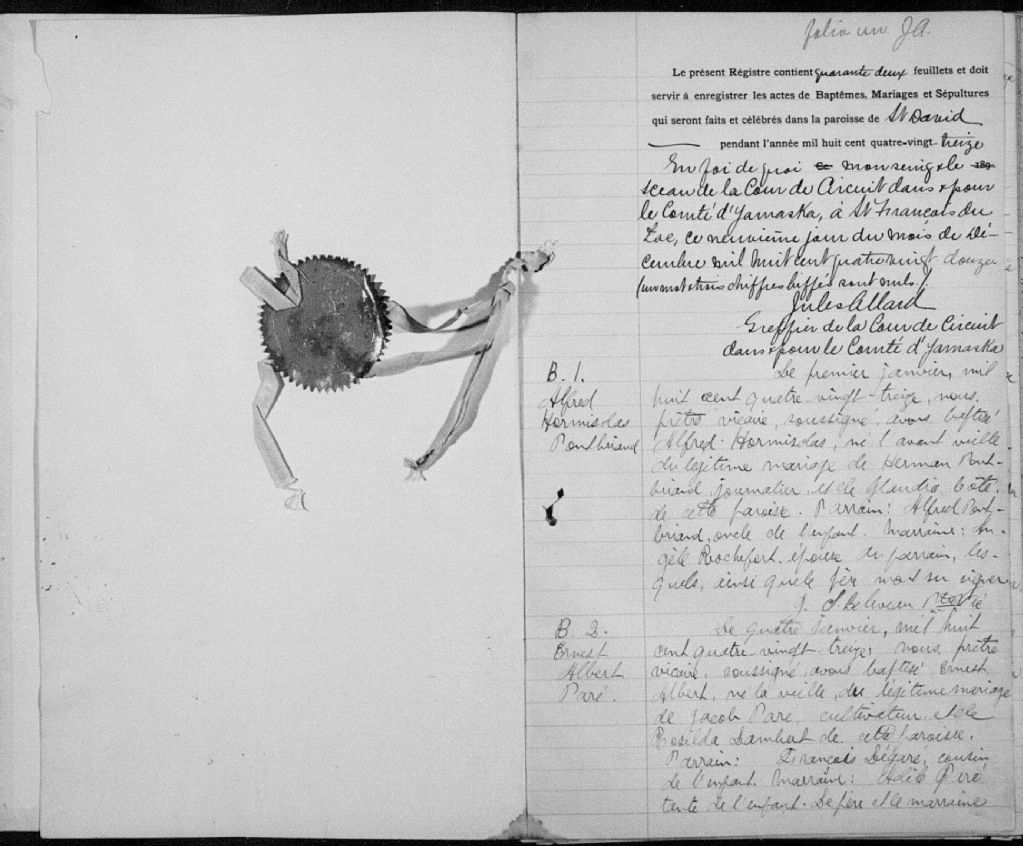 folio un JA
Le présent Régistre contient quarante deux feuillets et doit
servir à enregistrer les actes de Baptêmes, Mariages et Sépultures
qui seront faits et célébrés dans la paroisse de St David
pendant l'année mil huit cent quatre-vingt-treize
En foi de quoi Ce mon seing & le 189
sceau de la Cour de Circuit dans & pour
le Comté d'Yamaska, à St François du
Lac, ce neuvième jour du mois de Dé-
cembre mil huit cent quatre vingt douze
(un mot & trois chiffres biffés sont nuls).
Jules Allard
Greffier de la Cour de Circuit
dans & pour le Comté d'Yamaska
B. 1.
Alfred
Hormisdas
Pontbriand
Le premier janvier, mil
huit cent quatre-vingt-treize, nous,
prêtre vicaire, soussigné avons baptisé
Alfred Hormisdas, né l'avant veille
du légitime mariage de Herman Pont-
briand, journalier, et de Claudia Coté,
de cette paroisse. Parrain: Alfred Pont-
briand, oncle de l'enfant. Marraine: An-
gèle Rochefort, épouse du parrain, les-
quels, ainsi que le père n'ont su signer
J. Ptre Vic
B. 2.
Ernest
Albert
Paré.
Le quatre janvier, mil huit
cent quatre-vingt-treize, nous, prêtre
vicaire, soussigné, avons baptisé Ernest
Albert, né la veille, du légitime mariage
de Jacob Paré, cultivateur, et de
Rosilda Lambert de cette paroisse.
Parrain: François cousin
de l'enfant. Marraine:
tante de l'enfant. Le père et la marraine